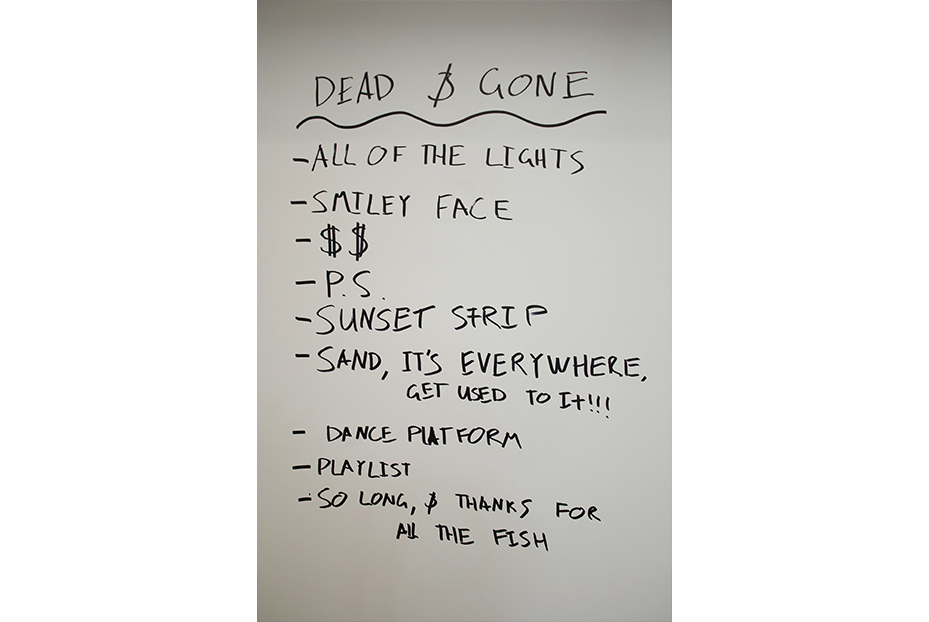 DEAD & GONE
- ALL OF THE LIGHTS
- SMILEY FACE
- $$
- P.S.
- SUNSET STRIP
- SAND, IT'S EVERYWHERE,
GET USED TO IT!!!
- DANCE PLATFORM
- PLAYLIST
- SO LONG, & THANKS FOR
ALL THE FISH